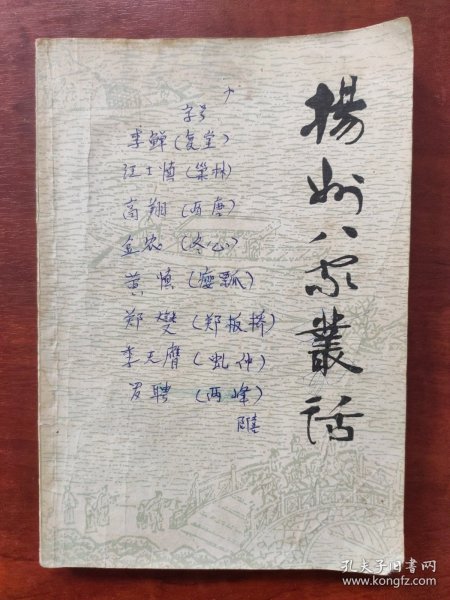 揚州八家叢話
字号
李鱓(复堂)
汪士慎(巢林)
高翔(西唐)
金农(冬心)
黄慎(瘿瓢)
郑燮(郑板桥)
李无膺(虬仲)
罗聘(两峰)
孔夫子旧书网
www.kongfz.com